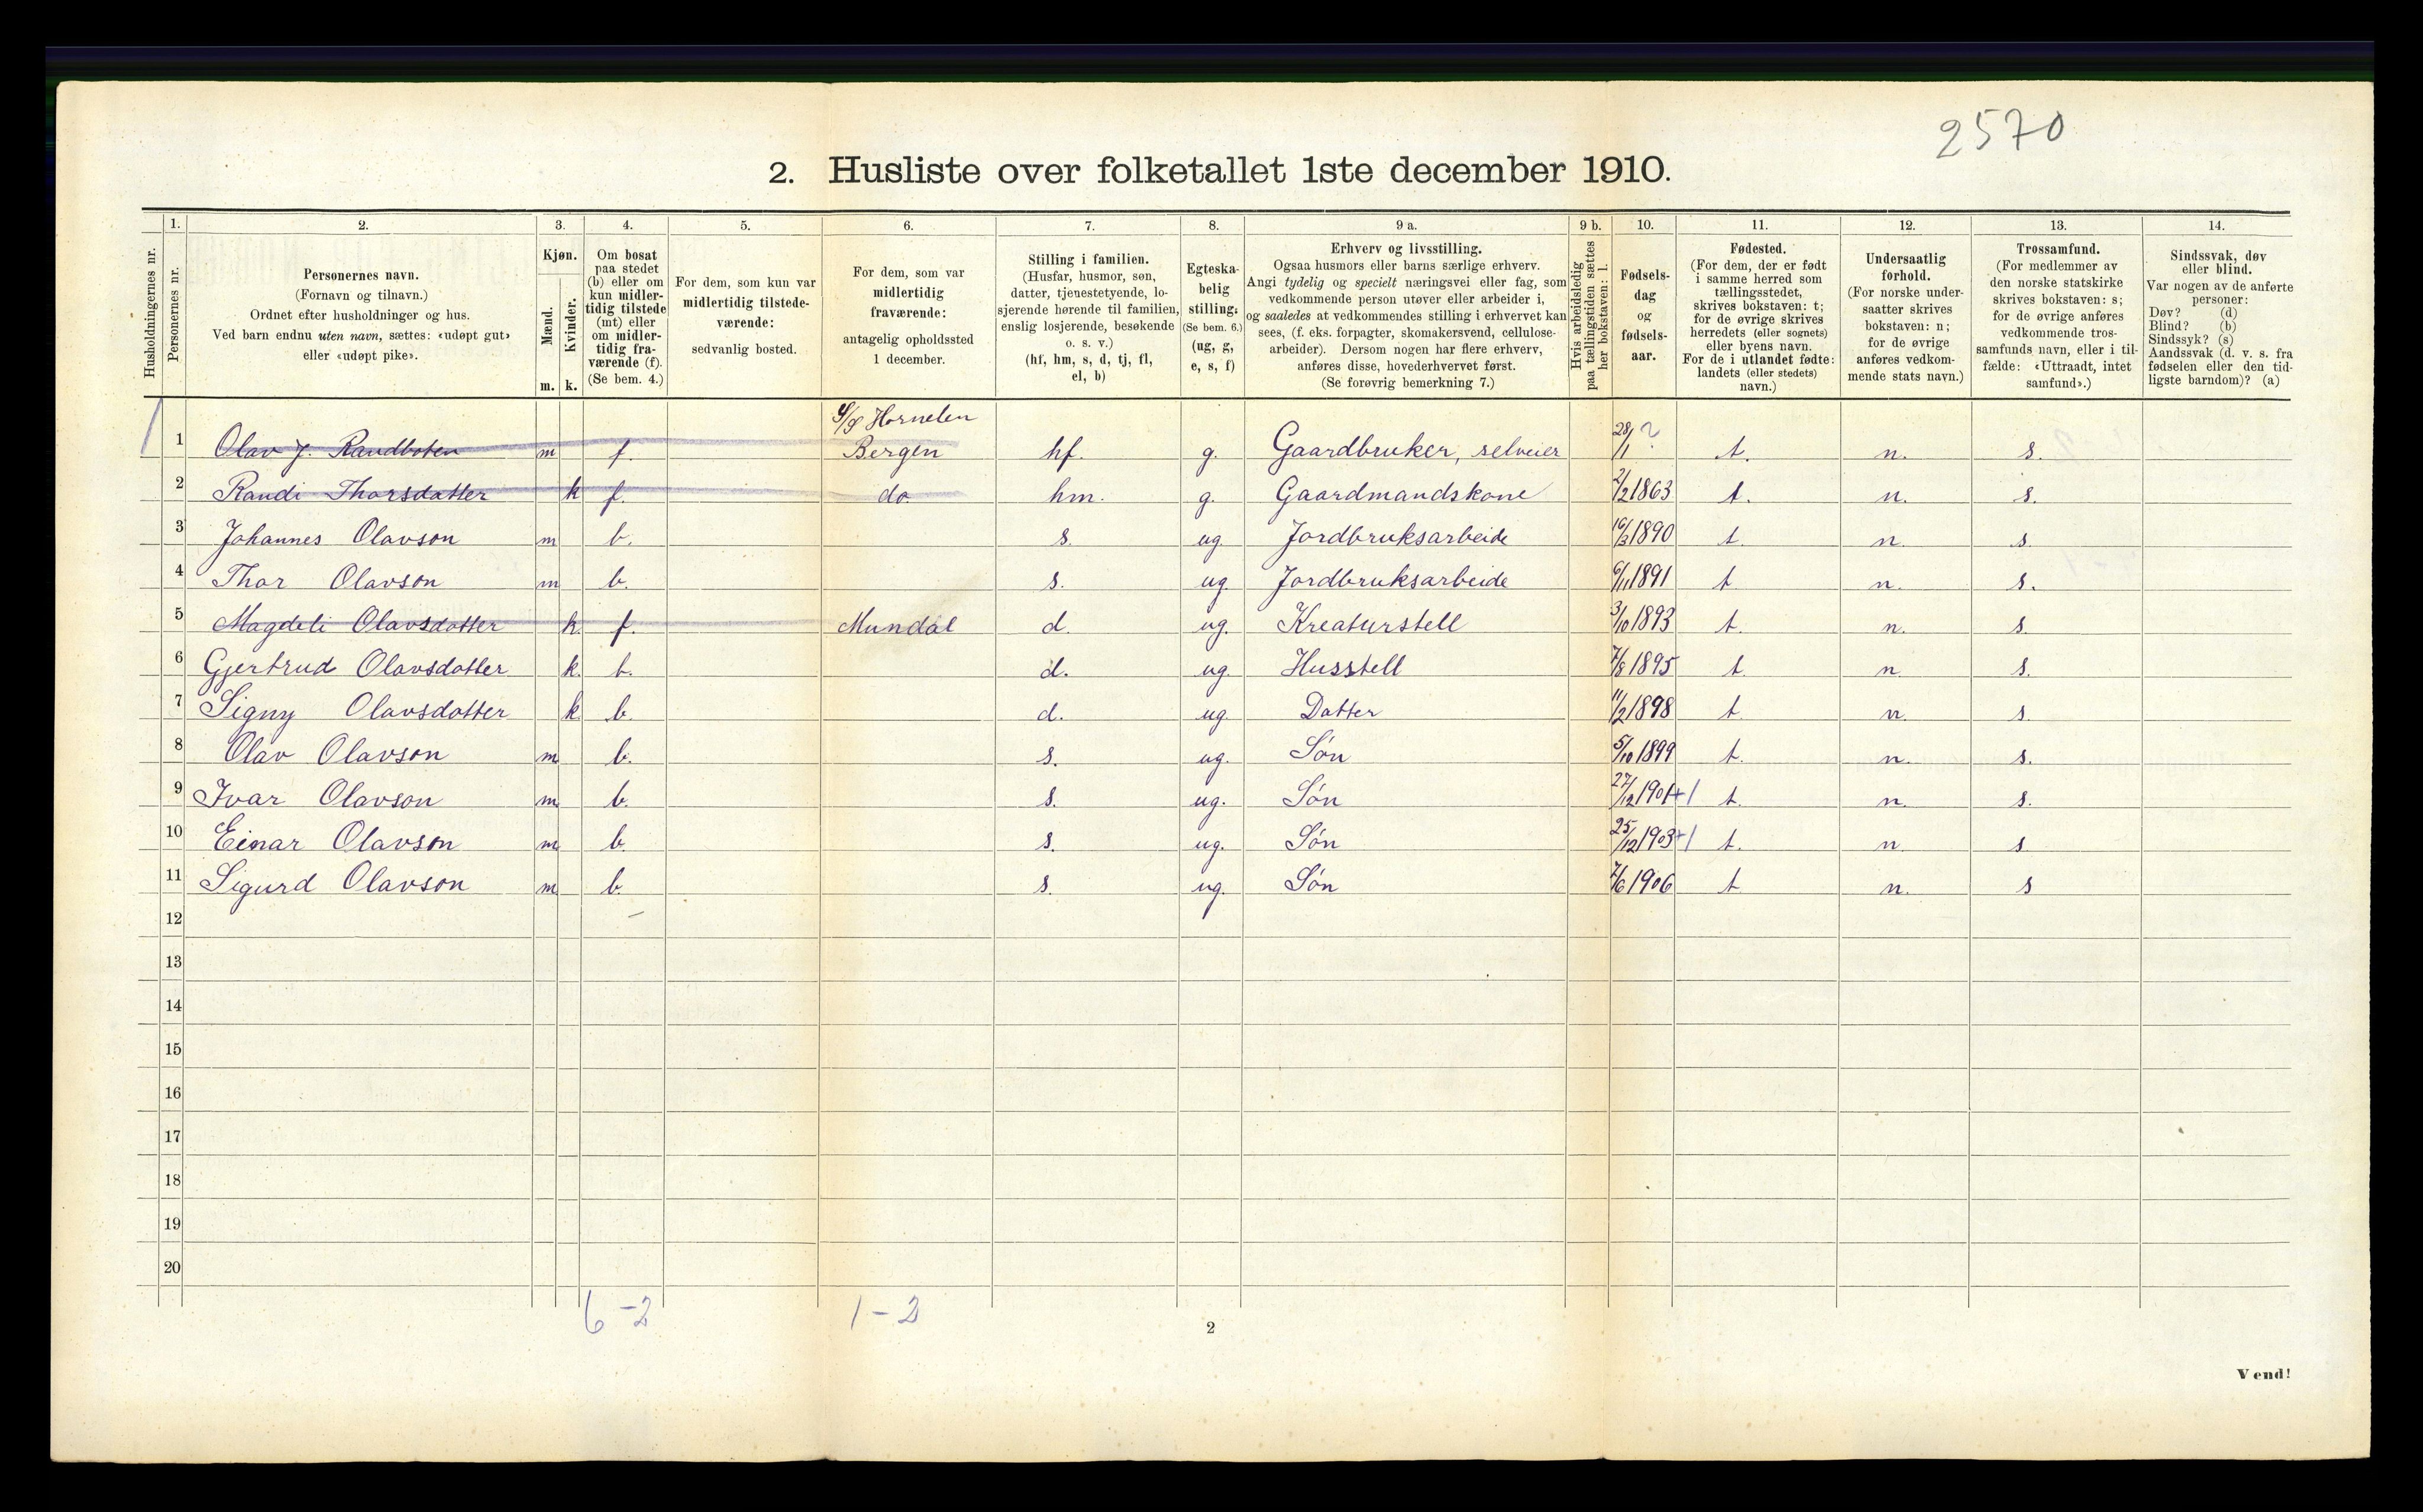 2570
2. Husliste over folketallet 1ste december 1910.
Husholdningernes nr.
1.
Personernes nr.
2.
Personernes navn.
(Fornavn og tilnavn.)
Ordnet efter husholdninger og hus.
Ved barn endnu uten navn, sættes: «udøpt gut»
eller «udøpt pike».
3.
Kjøn.
Mænd.
Kvinder.
m. k.
4.
Om bosat
paa stedet
(b) eller om
kun midler-
tidig tilstede
(mt) eller
om midler-
tidig fra-
værende (f).
(Se bem. 4.)
5.
For dem, som kun var
midlertidig tilstede-
værende:
sedvanlig bosted.
6.
For dem, som var
midlertidig
fraværende:
antagelig opholdssted
1 december.
7.
Stilling i familien.
(Husfar, husmor, søn,
datter, tjenestetyende, lo-
sjerende hørende til familien,
enslig losjerende, besøkende
o. s. v.)
(hf, hm, s, d, tj, fl,
el, b)
8.
Egteska-
belig
stilling.
(Se bem. 6.)
(ug, g,
e, s, f)
9 a.
Erhverv og livsstilling.
Ogsaa husmors eller barns særlige erhverv.
Angi tydelig og specielt næringsvei eller fag, som
vedkommende person utøver eller arbeider i,
og saaledes at vedkommendes stilling i erhvervet kan
sees, (f. eks. forpagter, skomakersvend, cellulose-
arbeider). Dersom nogen har flere erhverv,
anføres disse, hovederhvervet først.
(Se forøvrig bemerkning 7.)
9 b.
Hvis arbeidsledig
paa tællingstiden sættes
her bokstaven: l.
10.
Fødsels-
dag
og
fødsels-
aar.
11.
Fødested.
(For dem, der er født
i samme herred som
tællingsstedet,
skrives bokstaven: t;
for de øvrige skrives
herredets (eller sognets)
eller byens navn.
For de i utlandet fødte:
landets (eller stedets)
navn.)
12.
Undersaatlig
forhold.
(For norske under-
saatter skrives
bokstaven: n;
for de øvrige
anføres vedkom-
mende stats navn.)
13.
Trossamfund.
(For medlemmer av
den norske statskirke
skrives bokstaven: s;
for de øvrige anføres
vedkommende tros-
samfunds navn, eller i til-
fælde: «Uttraadt, intet
samfund».)
14.
Sindssvak, døv
eller blind.
Var nogen av de anførte
personer:
Døv? (d)
Blind? (b)
Sindssyk? (s)
Aandssvak (d. v. s. fra
fødselen eller den tid-
ligste barndom)? (a)
S/S Hornelen
1 Olav J. Randboten m f. Bergen hf. g. Gaardbruker, selveier 28/1 ? t. n. s.
2 Randi Thorsdatter k f. do hm. g. Gaardmandskone 2/2 1863 t. n. s.
3 Johannes Olavson m b. s. ug. Jordbruksarbeide 16/3 1890 t. n. s.
4 Thor Olavson m b. s. ug. Jordbruksarbeide 6/11 1891 t n. s.
5 Magdeli Olavsdatter k. f. Mundal d. ug. Kreaturstell 3/10 1893 t. n. s.
6 Gjertrud Olavsdatter k. b. d. ug. Husstell 7/8 1895 t. n. s.
7 Signy Olavsdatter k b. d. ug. Datter 11/2 1898 t n. s.
8 Olav Olavson m b. s. ug. Søn 5/10 1899 t. n. s.
9 Ivar Olavson m b. s. ug. Søn 27/12 1901 +1 t. n. s.
10 Einar Olavson m b. s. ug. Søn 25/12 1903 +1 t. n. s
11 Sigurd Olavson m b. s. ug. Søn 7/6 1906 t n. s
12
13
14
15
16
17
18
19
20
6 - 2
1 - 2
2
Vend!